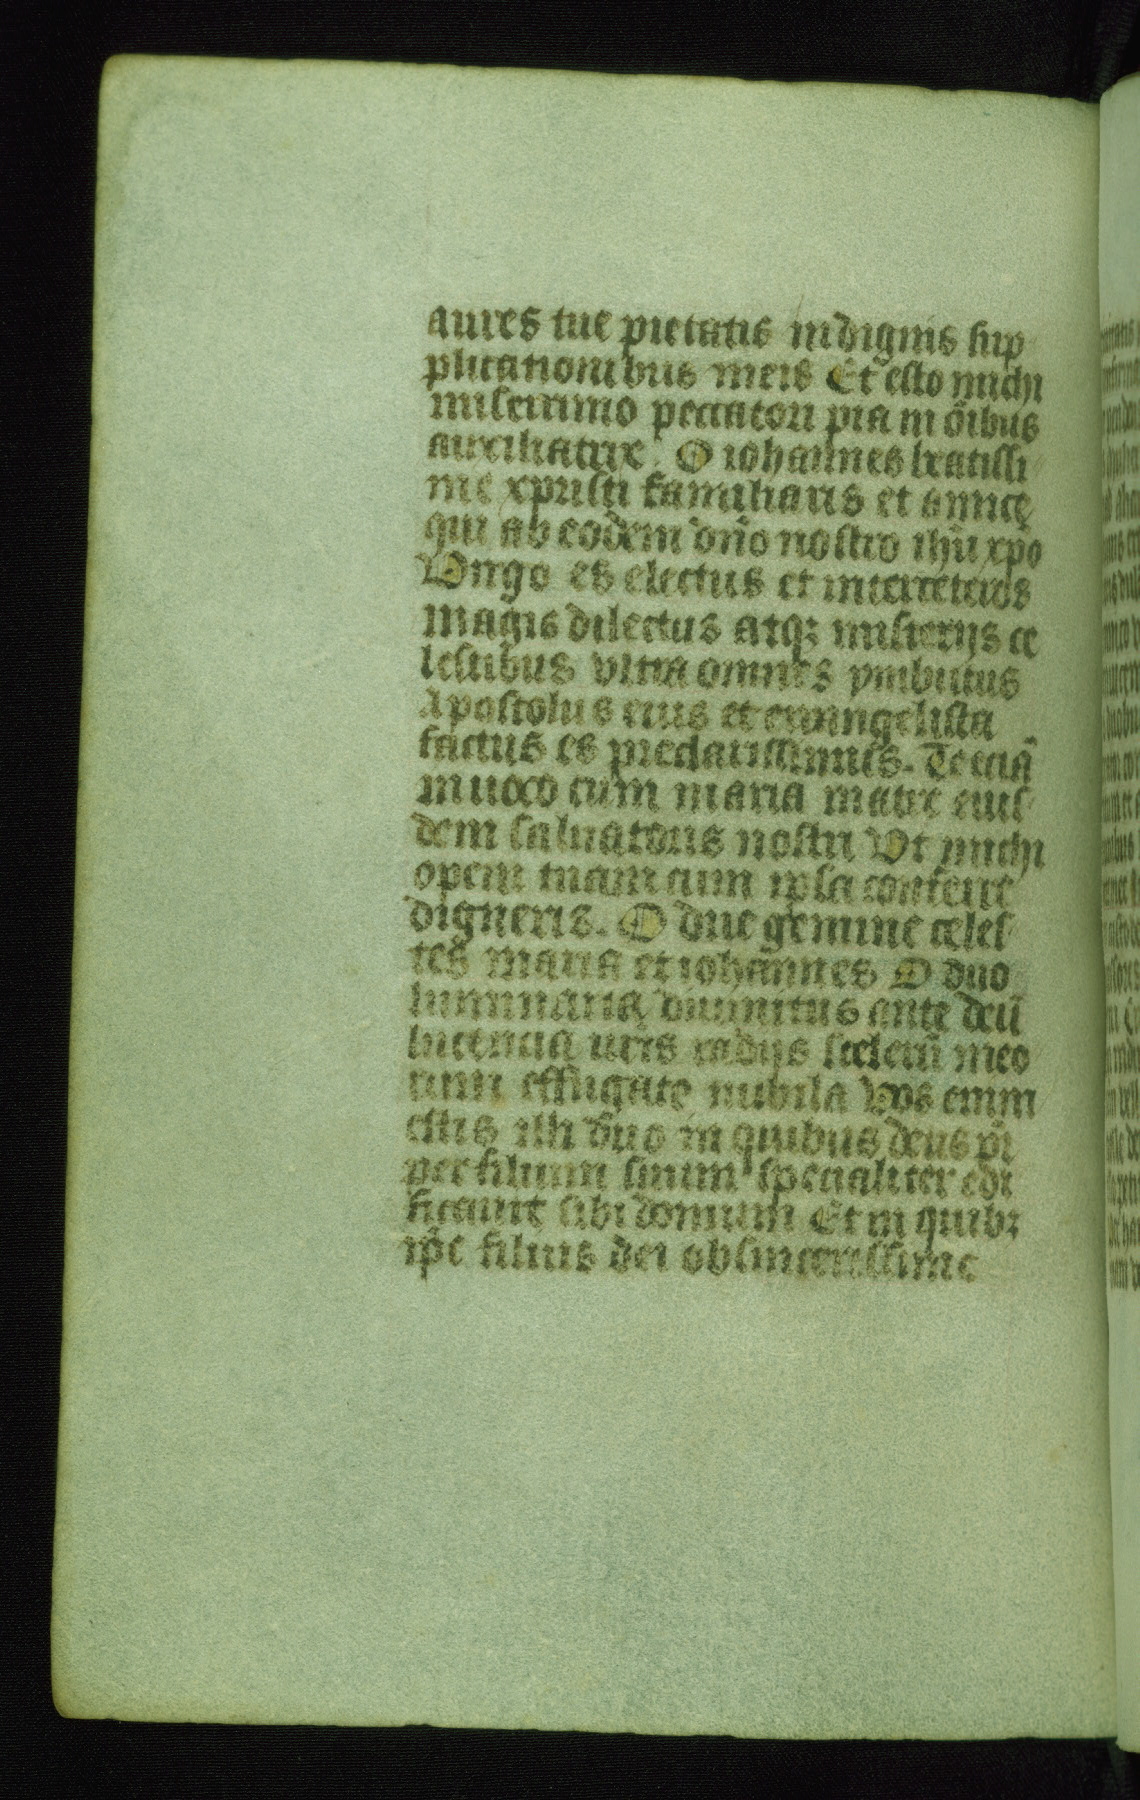 aures tue pietatis indignis sup
plicationibus meis Et esto michi
miserrimo peccatori pia in oı̄bus
auxiliatrix. O iohannes beatissi
me xpristi familiaris et amice
qui ab eodem dn̄o nostro ihū xpō
Virgo es electus et inter ceteros
magis dilectus atqꝫ misterijs ce
lestibus vltra omnes ymbutus
Apostolus eius et ewangelista
factus es preclarissimus. Te eciā
inuoco cum maria matre eius
dem saluatoris nostri Vt michi
opem tuam cum ipsa conferre
digneris. O due gemme celes
tes maria et iohannes O duo
luminaria diuinitus ante deū
lucencia vr̄is radijs scelerū meo
rum effugate nubila Vos enim
estis illi duo in quibus deus pr̄
per filium suum specialiter edi
ficauit sibi domum Et in quibꝫ
ip̄e filius dei ob sincerissime